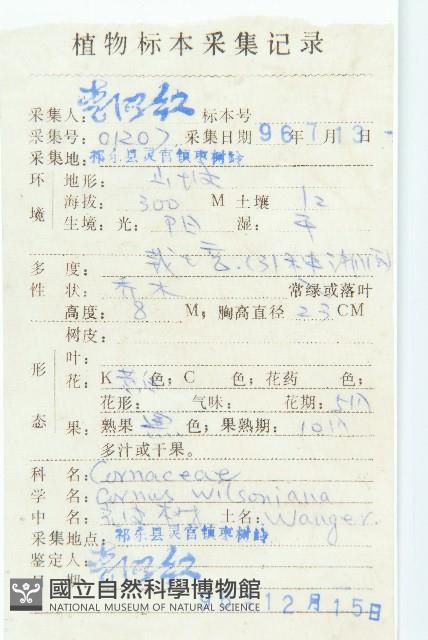 植物标本采集记录
采集人: 红 标本号
采集号: 01207 采集日期 96年7月13日
采集地: 祁东县灵官镇枣树岭
环境 地形: 山坡
海拔: 300 M 土壤
生境: 光: 阳 湿: 干
多度:
性状: 乔木 常绿或落叶
高度: 8 M; 胸高直径 23 CM
树皮:
形态 叶:
花: K 色; C 色; 花药 色;
花形: 气味: 花期: 5月
果: 熟果 黑 色; 果熟期: 10月
多汁或干果。
科名: Cornaceae
学名: Cornus wilsoniana
中名: 土名: Wanger.
采集地点: 祁东县灵官镇枣树岭
鉴定人: 红
期 12月15日
國立自然科學博物館
NATIONAL MUSEUM OF NATURAL SCIENCE